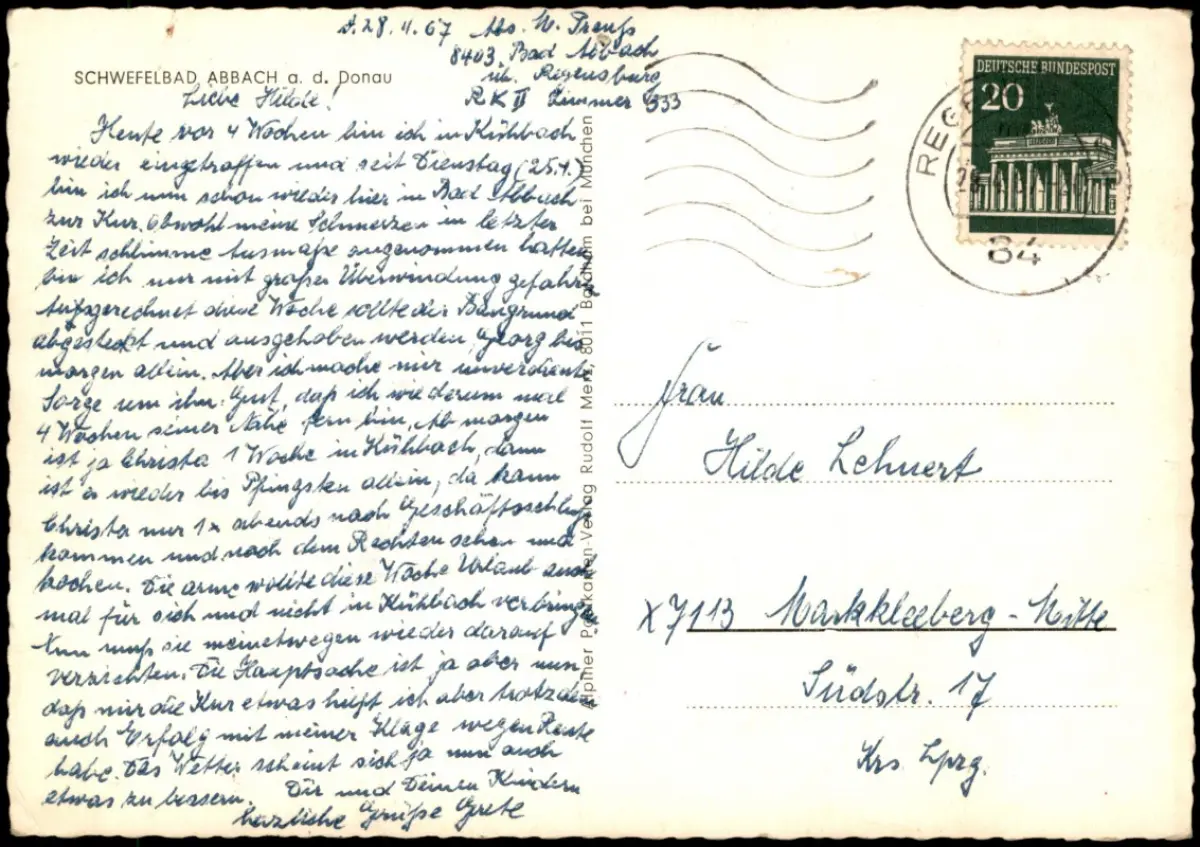 d. 28. 4. 67 Abs. M. Preuß
8403 Bad Abbach
üb. Regensburg
RK II Zimmer 333
SCHWEFELBAD ABBACH a. d. Donau
Liebe Hilde!
Heute vor 4 Wochen bin ich in Kühbach
wieder eingetroffen und seit Dienstag (25.4.)
bin ich nun schon wieder hier in Bad Abbach
zur Kur. Obwohl meine Schmerzen in letzter
Zeit schlimme Ausmaße angenommen hatten
bin ich nur mit großer Überwindung gefahren
Ausgerechnet diese Woche sollte der Baugrund
abgesteckt und ausgehoben werden, Georg bis
morgen allein. Aber ich mache mir unverdiente
Sorge um ihn. Gut, daß ich wiederum mal
4 Wochen seiner Nähe fern bin. Ab morgen
ist ja Christa 1 Woche in Kühbach, dann
ist er wieder bis Pfingsten allein, da kann
Christa nur 1x abends nach Geschäftsschluß
kommen und nach dem Rechten sehen und
kochen. Die arme wollte diese Woche Urlaub auch
mal für sich und nicht in Kühbach verbringen
Nun muß sie meinetwegen wieder darauf
verzichten. Die Hauptsache ist ja aber nun
daß mir die Kur etwas hilft ich aber trotzdem
auch Erfolg mit meiner Klage wegen Rente
habe. Das Wetter scheint sich ja nun auch
etwas zu bessern. Dir und Deinen Kindern
herzliche Grüße Grete
Alpiner Postkarten-Verlag Rudolf Merz, 8011 Baldham bei München
DEUTSCHE BUNDESPOST
20
REGE
84
Frau
Hilde Lehnert
X7113 Markkleeberg-Mitte
Südstr. 17
Krs Lpzg.